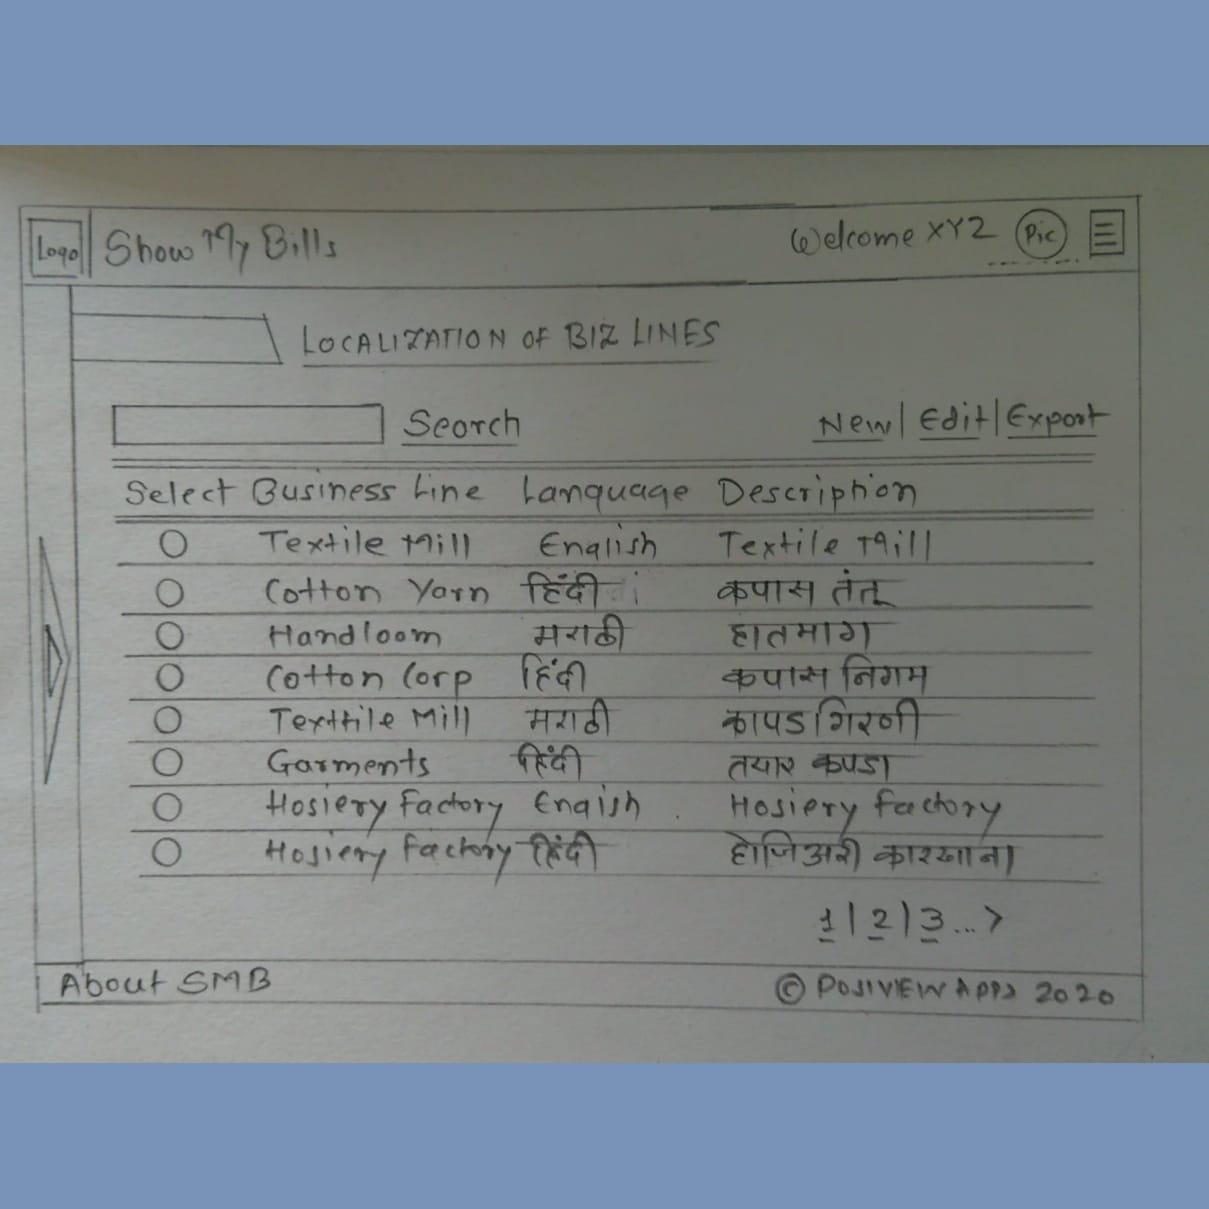 Logo Show My Bills Welcome XYZ Pic
LOCALIZATION OF BIZ LINES
Search New | Edit | Export
Select Business Line Language Description
Textile Mill English Textile Mill
Cotton Yarn हिंदी कपास तंतू
Handloom मराठी हातमाग
Cotton Corp हिंदी कपास निगम
Texttile Mill मराठी कापड गिरणी
Garments हिंदी तयार कपडा
Hosiery Factory Engish Hosiery Factory
Hosiery Factory हिंदी होजिअरी कारखाना
1 | 2 | 3 ... >
About SMB © POSIVIEW APPS 2020